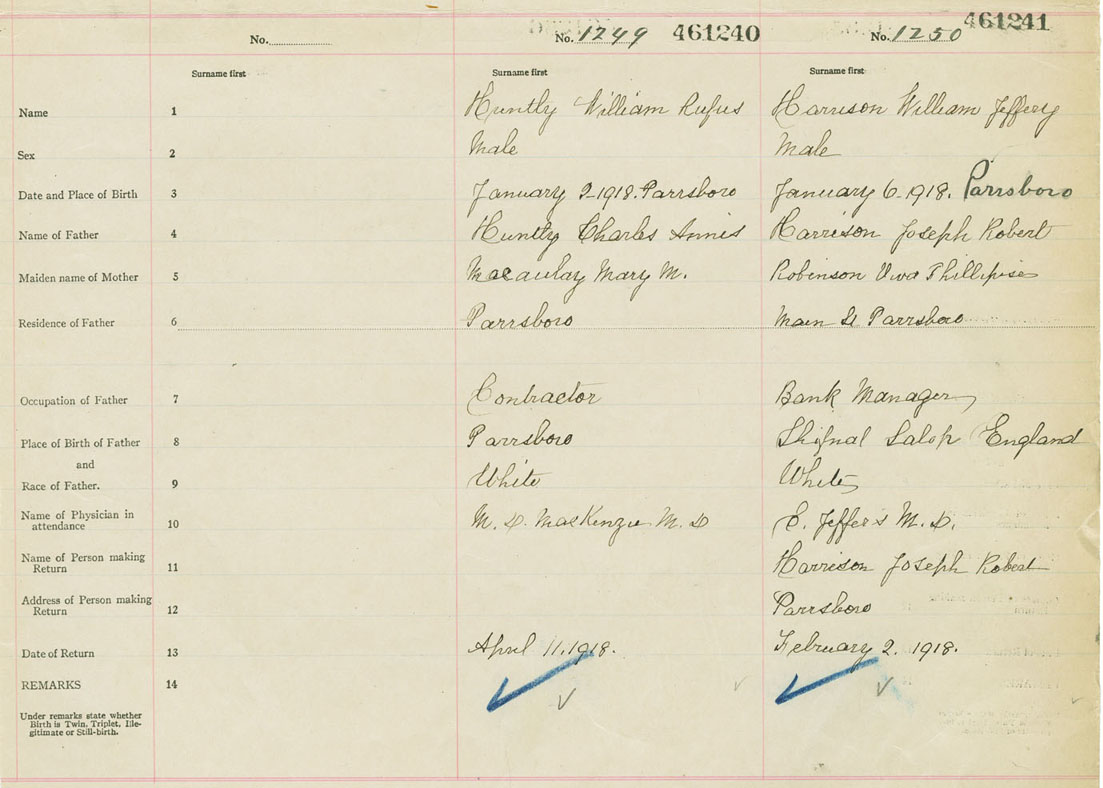 No. No. 1249 461240 No. 1250 461241
Surname first Surname first Surname first
Name 1 Huntly William Rufus Harrison William Jeffery
Sex 2 Male Male
Date and Place of Birth 3 January 2-1918. Parrsboro January 6-1918. Parrsboro
Name of Father 4 Huntly Charles Annis Harrison Joseph Robert
Maiden name of Mother 5 Macaulay Mary M. Robinson
Residence of Father 6 Parrsboro Main St Parrsboro
Occupation of Father 7 Contractor Bank Manager
Place of Birth of Father 8 Parrsboro Shifnal Salop England
and
Race of Father. 9 White White
Name of Physician in
attendance 10 M. D. MacKenzie M. D C. Jeffers M. D.
Name of Person making
Return 11 Harrison Joseph Robert
Address of Person making
Return 12 Parrsboro
Date of Return 13 April 11, 1918. February 2. 1918.
REMARKS 14
Under remarks state whether
Birth is Twin, Triplet, Ille-
gitimate or Still-birth.